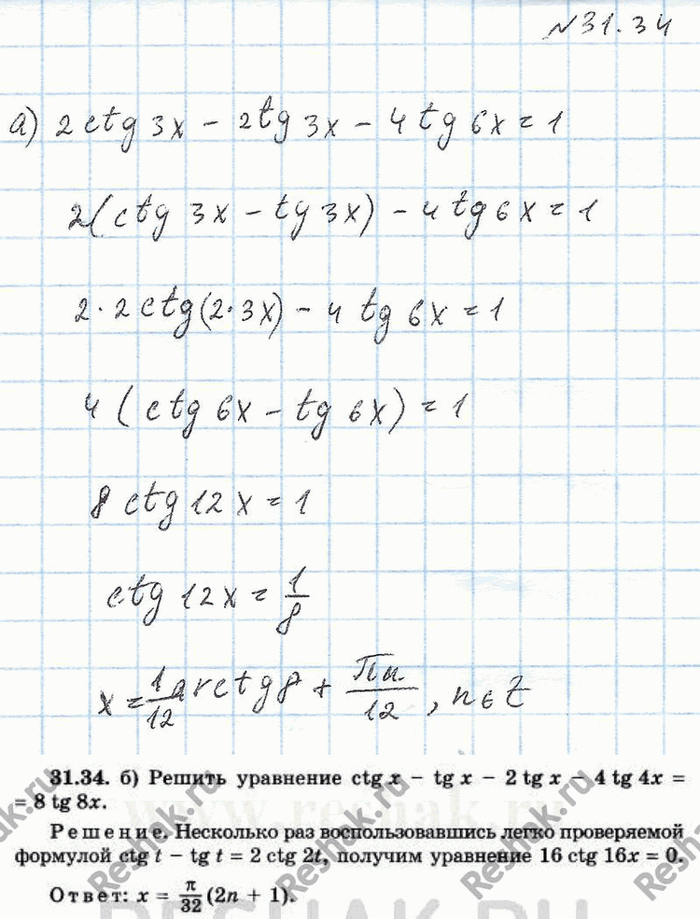 №31.34
а) 2 ctg 3x - 2tg 3x - 4 tg 6x = 1
2(ctg 3x - tg 3x) - 4 tg 6x = 1
2 · 2 ctg(2 · 3x) - 4 tg 6x = 1
4 (ctg 6x - tg 6x) = 1
8 ctg 12x = 1
ctg 12x = 1/8
x = 1/12 arctg 8 + πn/12 , n ∈ Z
31.34. б) Решить уравнение ctg x − tg x − 2 tg x − 4 tg 4x =
= 8 tg 8x.
Решение. Несколько раз воспользовавшись легко проверяемой
формулой ctg t − tg t = 2 ctg 2t, получим уравнение 16 ctg 16x = 0.
Ответ: x = π/32 (2n + 1).
www.reshak.ru
Reshak.ru
Reshak.ru
Reshak.ru
Reshak.ru
RESHAK.RU